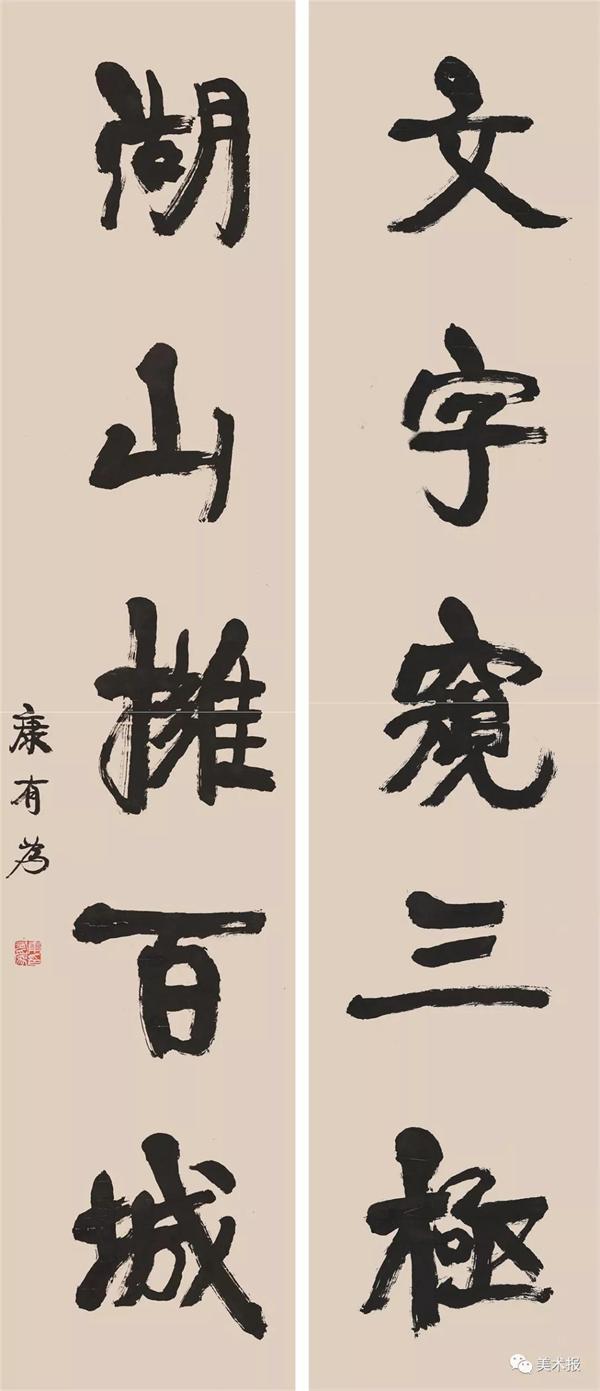 文字窺三極
湖山擁百城
康有為
美术报